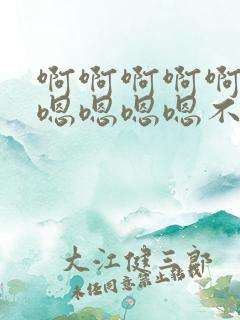 啊啊啊啊啊
嗯嗯嗯嗯不
大江健三郎
未经同意禁止转载